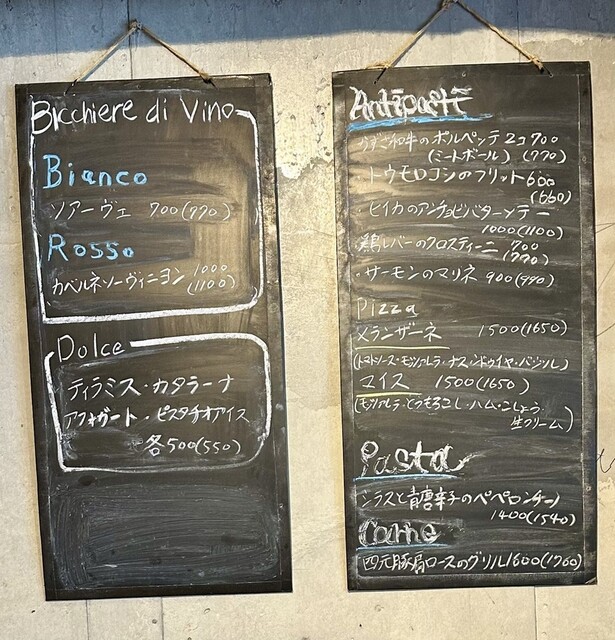 Bicchiere di Vino
Bianco
ソアーヴェ 700(770)
Rosso
カベルネソーヴィニヨン 1000
(1100)
Dolce
ティラミス・カタラーナ
アフォガート・ピスタチオアイス
各500(550)
Antipasti
かずさ和牛のポルペッテ2コ700
(ミートボール) (770)
・トウモロコシのフリット600
(660)
・ヒイカのアンチョビバターソテー
1000(1100)
・鶏レバーのクロスティーニ 700
(770)
・サーモンのマリネ 900(990)
Pizza
メランザーネ 1500(1650)
(トマトソース・モッツァレラ・ナス・ンドゥイヤ・バジル)
マイス 1500(1650)
(モッツァレラ・とうもろこし・ハム・こしょう・
生クリーム)
Pasta
シラスと青唐辛子のペペロンチーノ
1400(1540)
Carne
四元豚肩ロースのグリル1600(1760)